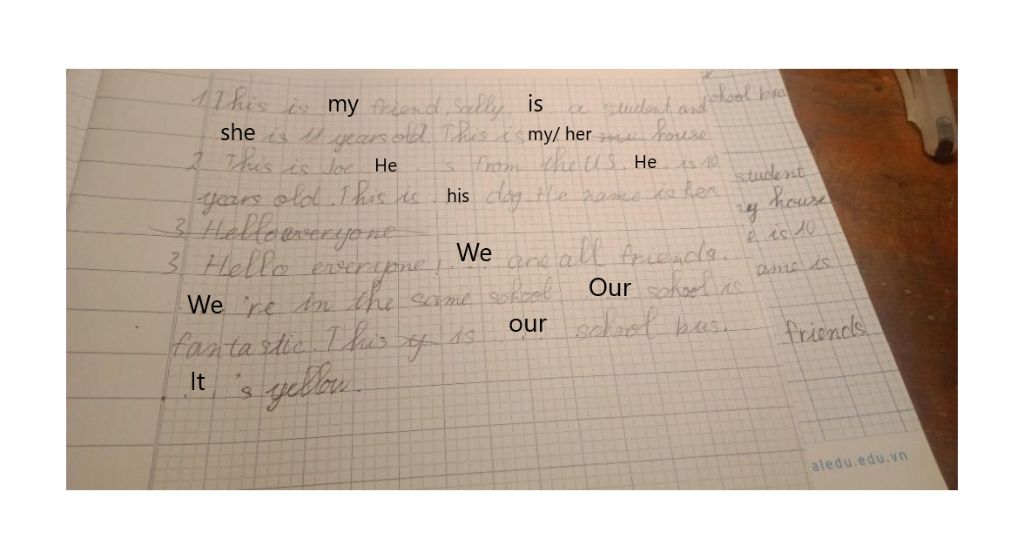 1. This is my friend. Sally is a student and
she is 11 years old. This is my/ her house
2. This is Joe He 's from the US. He is 10
years old. This is his dog. He name is Ken
3. Hello everyone
3. Hello everyone! We are all friends.
We 're in the same school Our school is
fantastic. This is our school bus.
It 's yellow.
school bus
student
house
is 10
ame is
friends
aledu.edu.vn